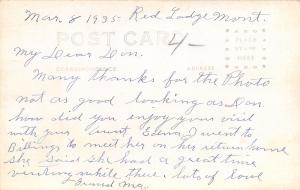 Mar. 8 1935. Red Lodge Mont.
POST CARD
4-
PLACE
STAMP
HERE
CORRESPONDENCE ADDRESS
My Dear Don.
Many thanks for the Photo
not as good looking as Don.
how did you enjoy your visit
with your Aunt Edna, I went to
Billings to meet her on her return home
She said she had a great time
visiting while there, lots of love
Grand Ma.